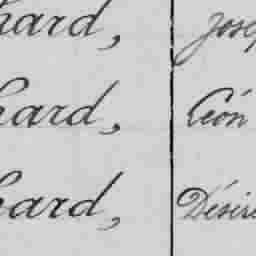 hard, Jose
hard, Léon
hard, Désiré